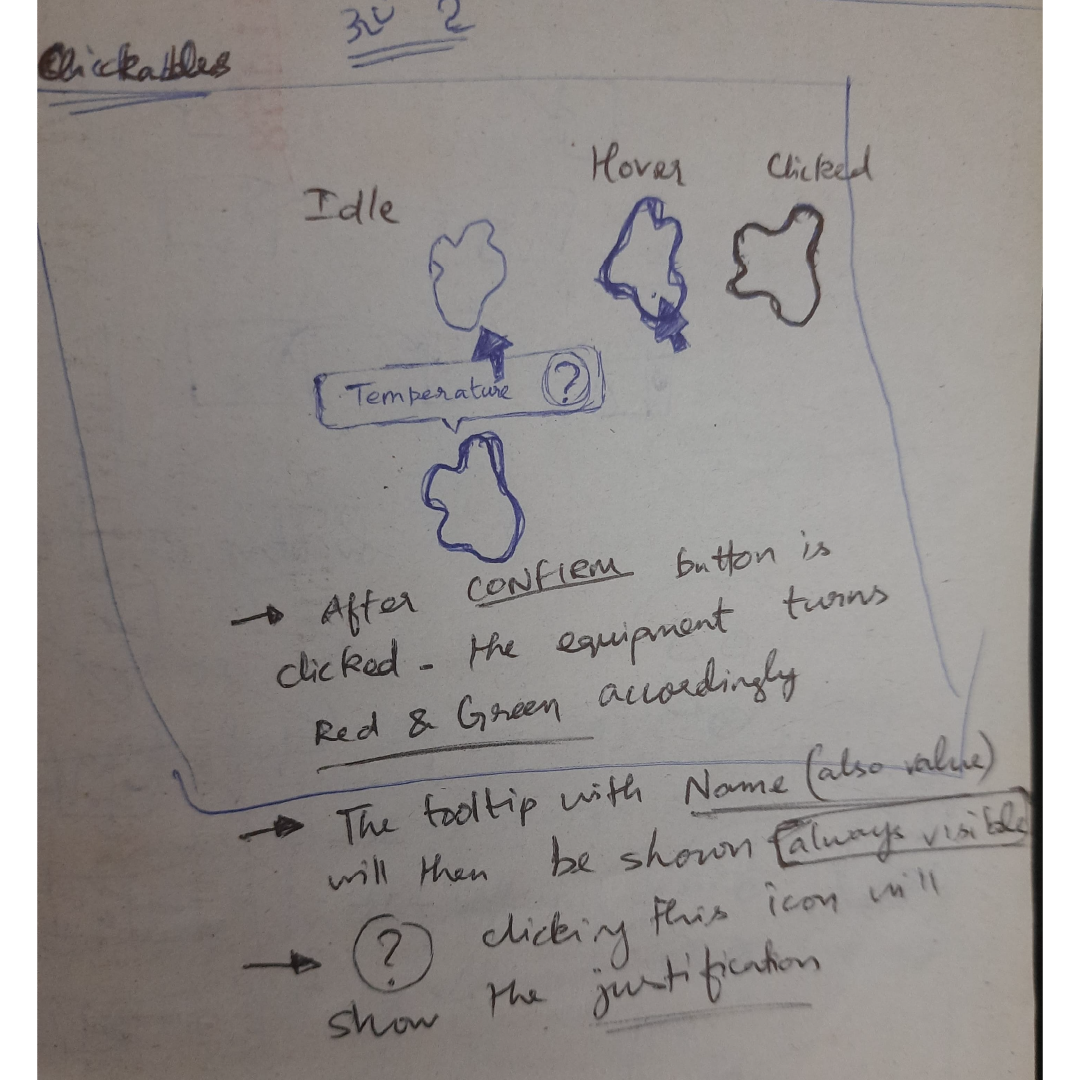 Clickables
2
Idle
Hover
Clicked
Temperature ?
→ After CONFIRM button is
clicked - the equipment turns
Red & Green accordingly
→ The tooltip with Name (also value)
will then be shown (always visible
→ ? clicking this icon will
show the justification